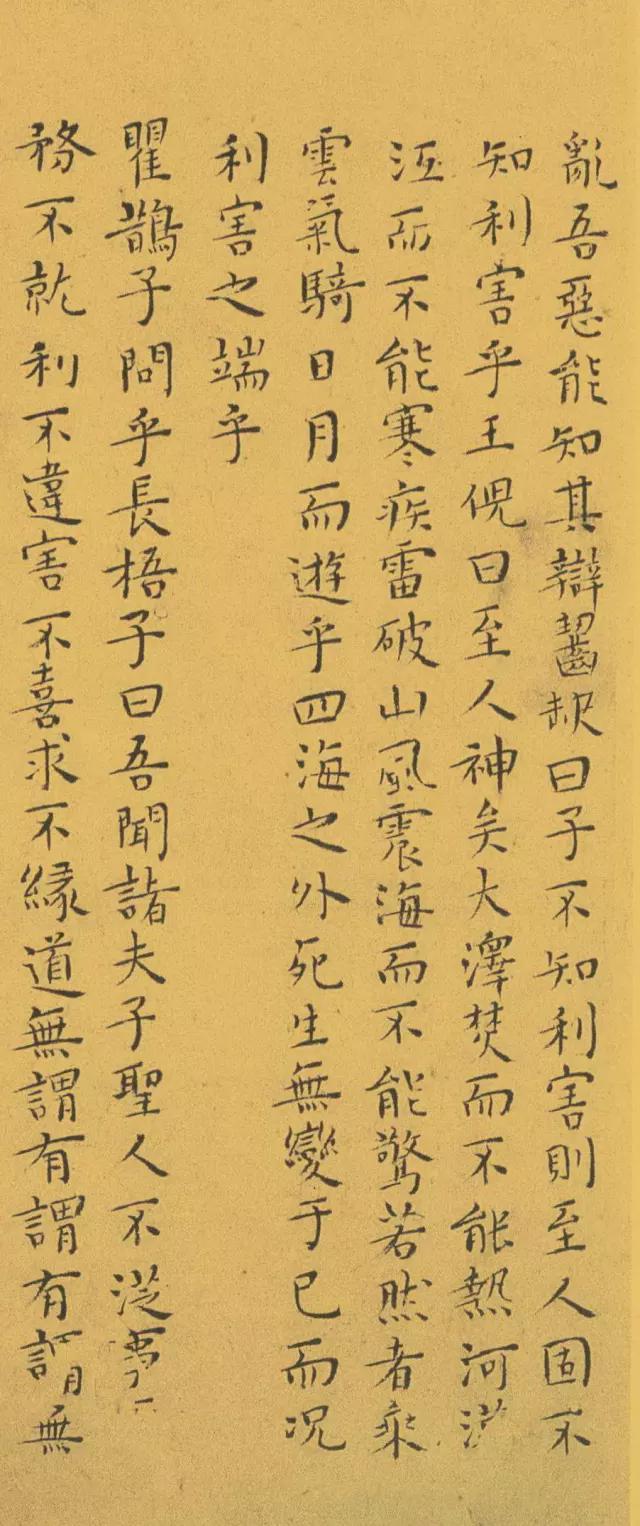 亂吾惡能知其辯齧𡙇曰子不知利害則至人固不
知利害乎王倪曰至人神矣大澤焚而不能熱河漢
沍而不能寒疾雷破山風震海而不能驚若然者乘
雲氣騎日月而遊乎四海之外死生無變于已而况
利害之端乎
瞿鵲子問乎長梧子曰吾聞諸夫子聖人不從事
務不就利不違害不喜求不緣道無謂有謂有謂無